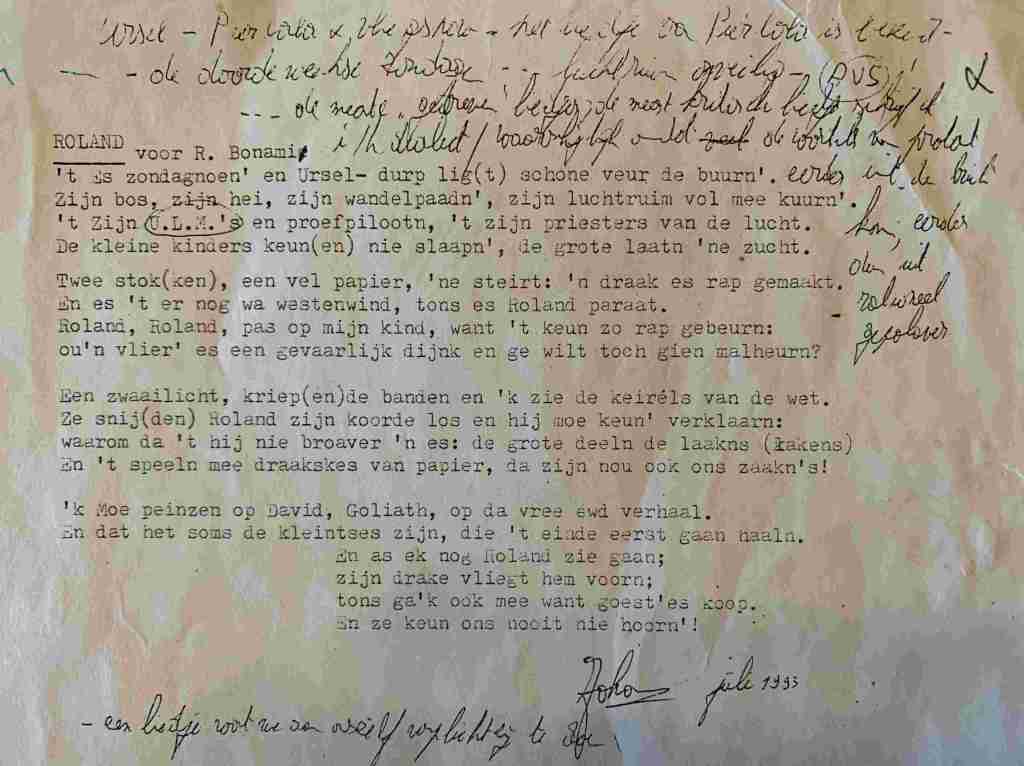 Ursel - Pierlala & vliegshow - het liedje van Pierlala is bekend -
- de doordeweekse Zondag -- luchtruim onveilig - (AVS)!
--- de meeste "gedreven" liedjes; de meest kritisch liedjes schrijf ik
i/h dialect / waarschijnlijk omdat de woorden
ROLAND voor R. Bonami,
't Es zondagnoen' en Ursel- durp lig(t) schone veur de buurn'. eerder uit de buik
Zijn bos, zijn hei, zijn wandelpaadn', zijn luchtruim vol mee kuurn'.
't Zijn U.L.M.'s en proefpilootn, 't zijn priesters van de lucht. kom, eerder
De kleine kinders keun(en) nie slaapn', de grote laatn 'ne zucht.
dan uit
Twee stok(ken), een vel papier, 'ne steirt: 'n draak es rap gemaakt.
En es 't er nog wa westenwind, tons es Roland paraat. rationeel
Roland, Roland, pas op mijn kind, want 't keun zo rap gebeurn:
ou'n vlier' es een gevaarlijk dijnk en ge wilt toch gien malheurn?
Een zwaailicht, kriep(en)de banden en 'k zie de keirels van de wet.
Ze snij(den) Roland zijn koorde los en hij moe keun' verklaarn:
waarom da 't hij nie broaver 'n es: de grote deeln de laakns (lakens)
En 't speeln mee draakskes van papier, da zijn nou ook ons zaakn's!
'k Moe peinzen op David, Goliath, op da vree ewd verhaal.
En dat het soms de kleintses zijn, die 't einde eerst gaan haaln.
En as ek nog Roland zie gaan;
zijn drake vliegt hem voorn;
tons ga'k ook mee want goest'es koop.
En ze keun ons nooit nie hoorn'!
Johan juli 1993
- een liedje wat we aan onszelf verplicht zijn te doen